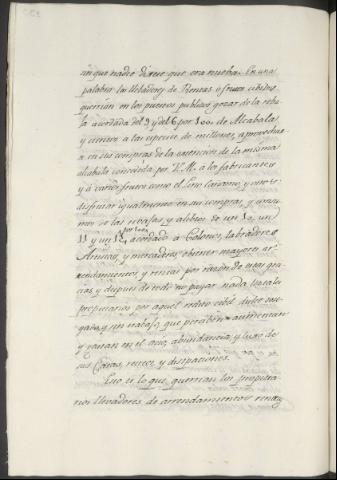 aunque nadie dixese que era nueba. En una
palabra los llebadores de Rentas o frutos civiles
querian en los puestos publicos gozar de la reba
ja acordada del 3 y del 6 por 100 de Alcabala
y cientos a las especies de millones, aprovechar
se en sus compras de la exencion de la misma
alcabala concedida por V. M. a los fabricantes
y a varios frutos como el Lino Cañamo y otros
disfrutar igualmente en sus compras, y consu
mos de las rebajas y alibios de un 10, un
11 y un 12 por 100 acordado a Colonos, labradores
Artistas, y mercaderes obtener mayores ar
rendamientos, y rentas por razon de estas gra
cias, y despues de todo no pagar nada los tales
propietarios por aquel redito civil dulce su
gano, y sin trabajo que perciben aumentan
y ganan en el ocio, abundancia y luxo de
sus Casas, mesas, y disipaciones.
Esto es lo que querrian los propieta
rios llevadores de arrendamientos rentas